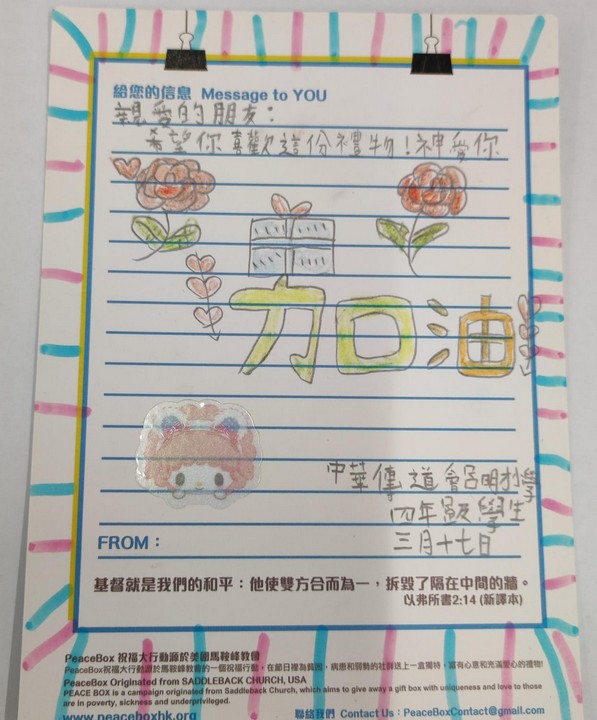 給您的信息 Message to YOU
親愛的朋友：
希望你喜歡這份禮物！神愛你
加油
中華傳道會呂明才小學
四年級學生
三月十七日
FROM：
基督就是我們的和平：他使雙方合而為一，拆毀了隔在中間的牆。
以弗所書2:14 (新譯本)
PeaceBox 祝福大行動源於美國馬鞍峰教會
PeaceBox祝福大行動源於馬鞍峰教會的一個祝福行動，在節日裡為貧困，病患和弱勢的社群送上一直獨特，富有心意和充滿愛心的禮物!
PeaceBox Originated from SADDLEBACK CHURCH, USA
PEACE BOX is a campaign originated from Saddleback Church, which aims to give away a gift box with uniqueness and love to those
are in poverty, sickness and underprivileged.
www.peaceboxhk.org 聯絡我們 Contact Us：PeaceBoxContact@gmail.com